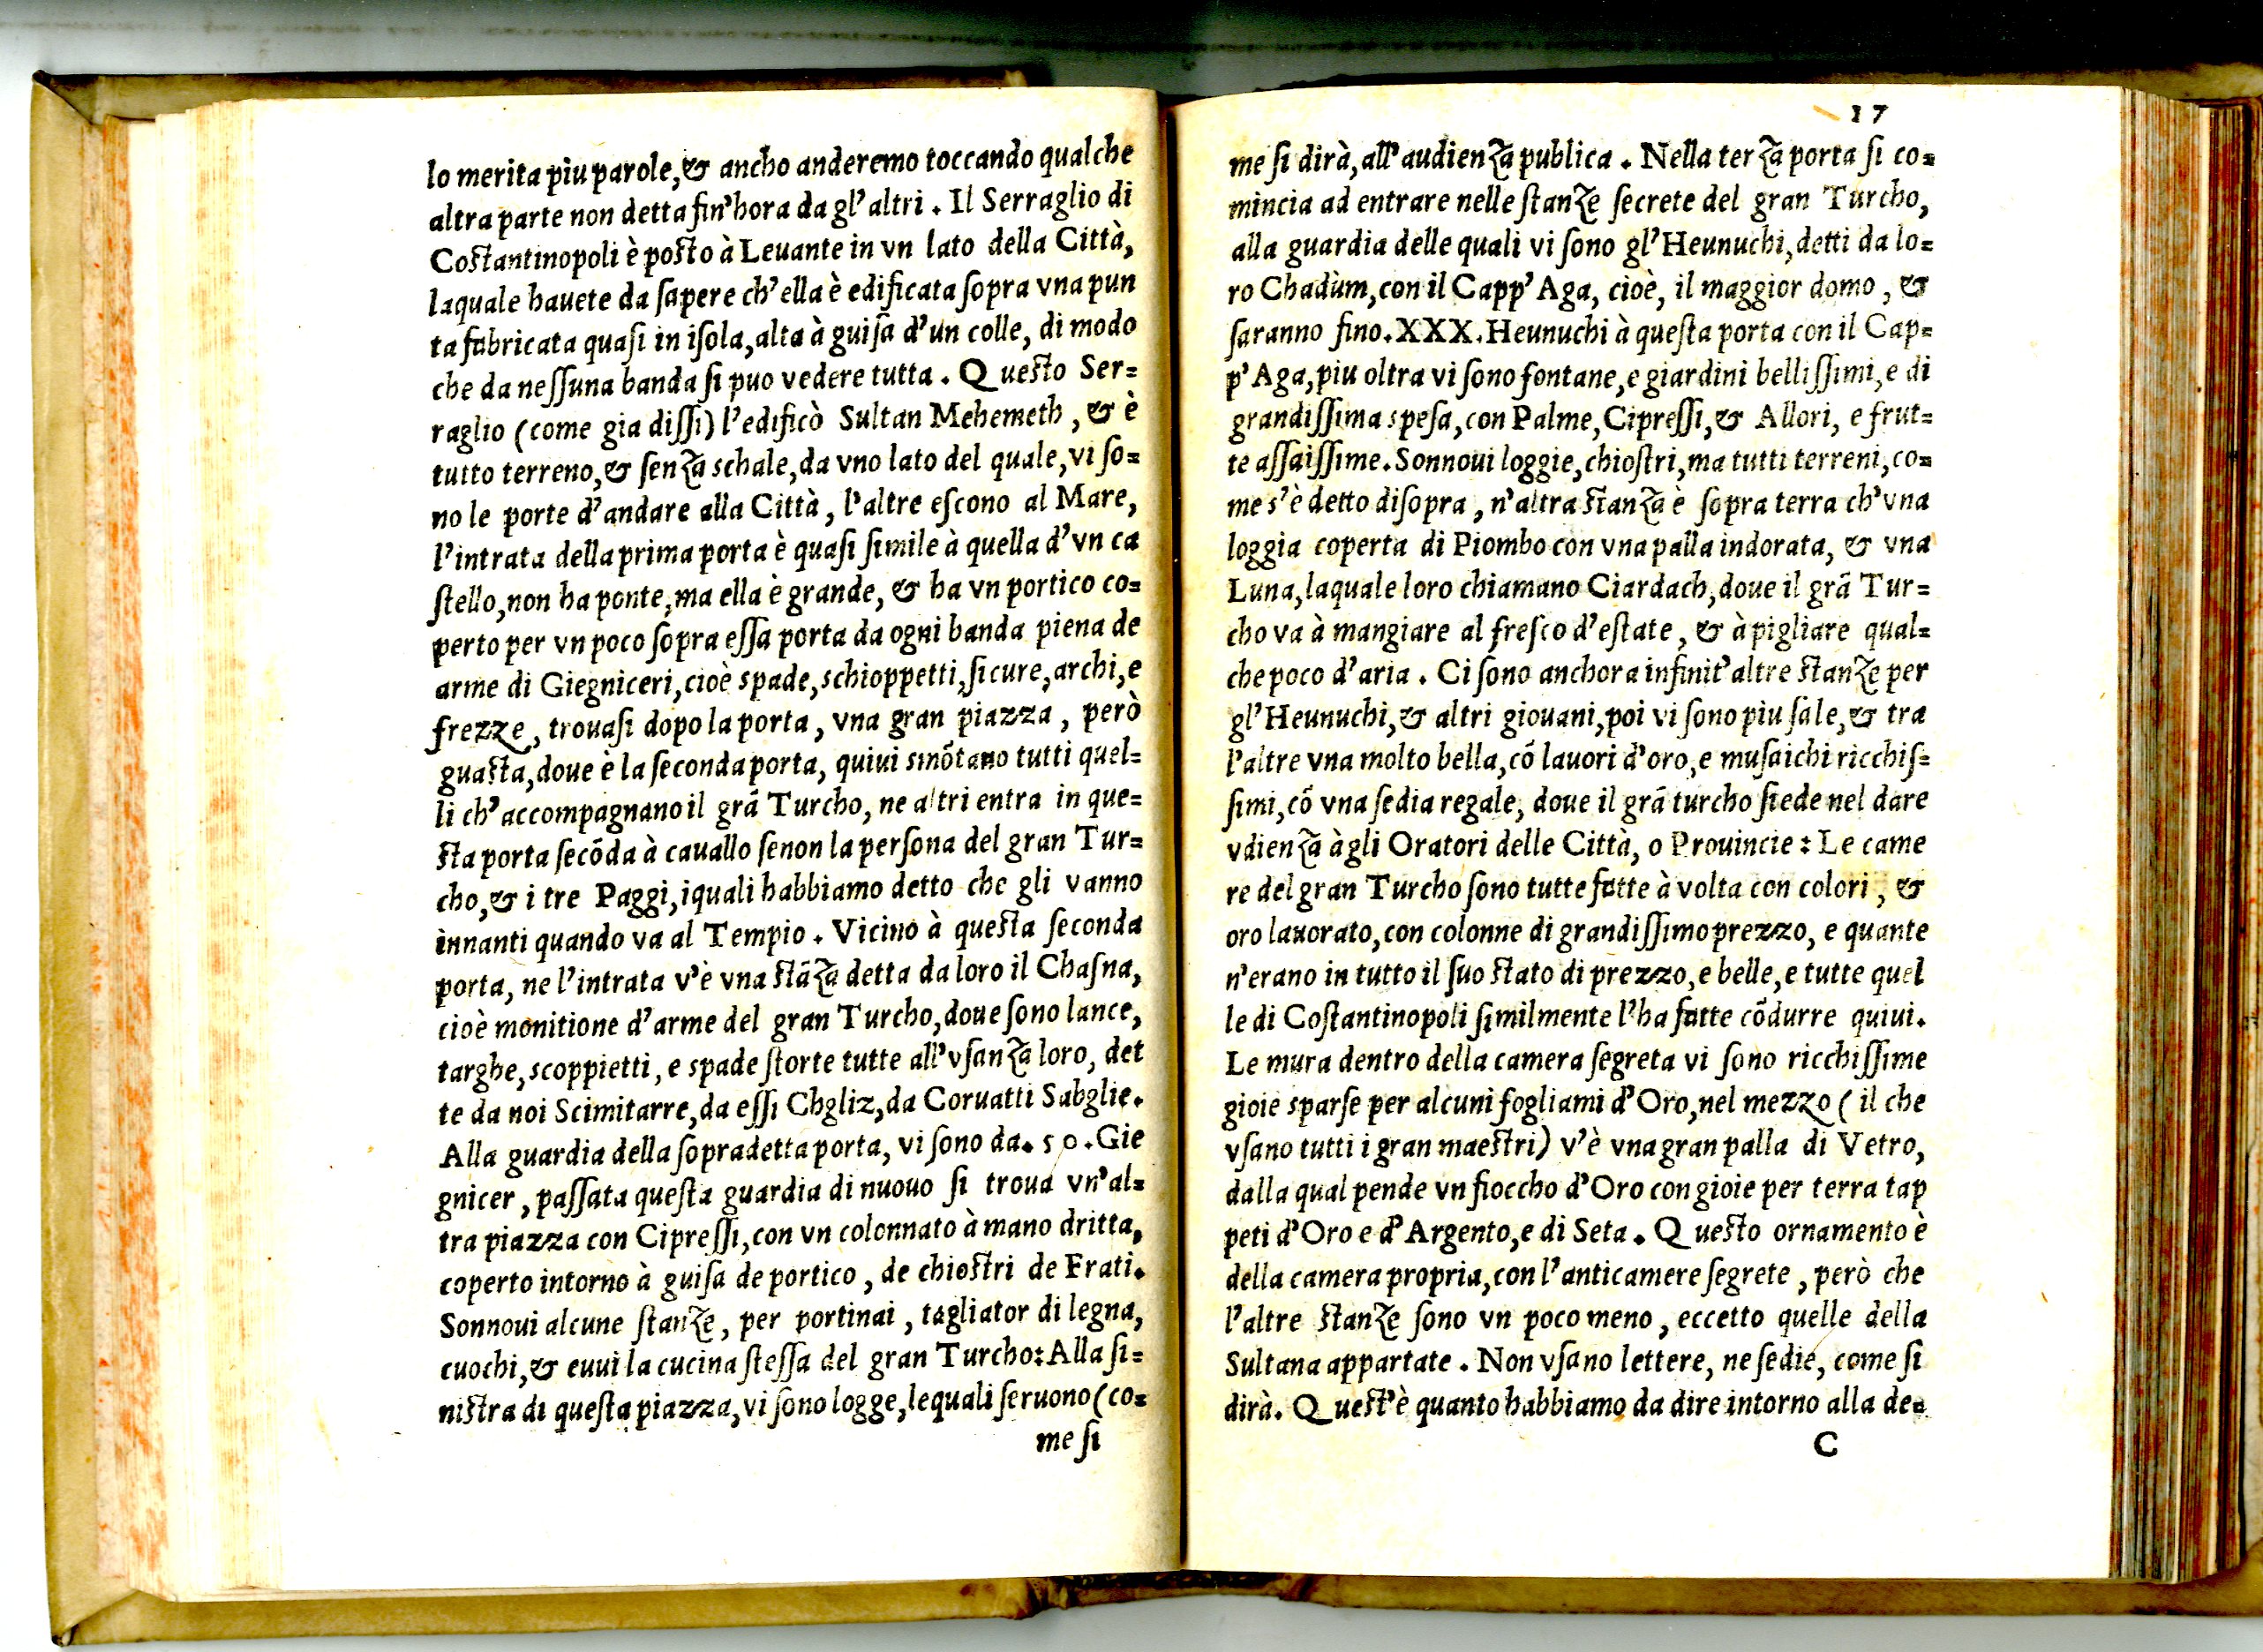 lo merita piu parole, & ancho anderemo toccando qualche
altra parte non detta fin'hora da gl'altri. Il Serraglio di
Coſtantinopoli è poſto à Leuante in vn lato della Città,
laquale hauete da ſapere ch'ella è edificata ſopra vna pun
ta fabricata quaſi in iſola, alta à guiſa d'un colle, di modo
che da neſſuna banda ſi puo vedere tutta. Queſto Ser=
raglio (come gia diſſi) l'edificò Sultan Mehemeth, & è
tutto terreno, & ſenza schale, da vno lato del quale, vi ſo=
no le porte d'andare alla Città, l'altre eſcono al Mare,
l'intrata della prima porta è quaſi ſimile à quella d'vn ca
ſtello, non ha ponte, ma ella è grande, & ha vn portico co=
perto per vn poco ſopra eſſa porta da ogni banda piena de
arme di Giegniceri, cioè spade, schioppetti, ſicure, archi, e
frezze, trouaſi dopo la porta, vna gran piazza, però
guaſta, doue è la ſeconda porta, quiui smõtano tutti quel=
li ch'accompagnano il grã Turcho, ne altri entra in que=
ſta porta ſecõda à cauallo ſenon la perſona del gran Tur=
cho, & i tre Paggi, iquali habbiamo detto che gli vanno
innanti quando va al Tempio. Vicino à queſta ſeconda
porta, ne l'intrata v'è vna ſtãza detta da loro il Chaſna,
cioè monitione d'arme del gran Turcho, doue ſono lance,
targhe, scoppietti, e spade ſtorte tutte all'vſanza loro, det
te da noi Scimitarre, da eſſi Chgliz, da Coruatti Sabglie.
Alla guardia della ſopradetta porta, vi ſono da. 50. Gie
gnicer, paſſata queſta guardia di nuouo ſi troua vn'al=
tra piazza con Cipreſſi, con vn colonnato à mano dritta,
coperto intorno à guiſa de portico, de chioſtri de Frati.
Sonnoui alcune ſtanze, per portinai, tagliator di legna,
cuochi, & euui la cucina ſteſſa del gran Turcho: Alla ſi=
niſtra di queſta piazza, vi ſono logge, lequali ſeruono (co=
me ſi
17
me ſi dirà, all'audienza publica. Nella terza porta ſi co=
mincia ad entrare nelle ſtanze ſecrete del gran Turcho,
alla guardia delle quali vi ſono gl'Heunuchi, detti da lo=
ro Chadùm, con il Capp'Aga, cioè, il maggior domo, &
ſaranno fino. XXX. Heunuchi à queſta porta con il Cap=
p'Aga, piu oltra vi ſono fontane, e giardini belliſſimi, e di
grandiſſima speſa, con Palme, Cipreſſi, & Allori, e frut=
te aſſaiſſime. Sonnoui loggie, chioſtri, ma tutti terreni, co=
me s'è detto diſopra, n'altra ſtanza è ſopra terra ch'vna
loggia coperta di Piombo con vna palla indorata, & vna
Luna, laquale loro chiamano Ciardach, doue il grã Tur=
cho va à mangiare al freſco d'eſtate, & à pigliare qual=
che poco d'aria. Ci ſono anchora infinit'altre ſtanze per
gl'Heunuchi, & altri giouani, poi vi ſono piu ſale, & tra
l'altre vna molto bella, cõ lauori d'oro, e muſaichi ricchiſ=
ſimi, cõ vna ſedia regale, doue il grã turcho ſiede nel dare
vdienza àgli Oratori delle Città, o Prouincie: Le came
re del gran Turcho ſono tutte fatte à volta con colori, &
oro lauorato, con colonne di grandiſſimo prezzo, e quante
n'erano in tutto il ſuo ſtato di prezzo, e belle, e tutte quel
le di Coſtantinopoli ſimilmente l'ha fatte cõdurre quiui.
Le mura dentro della camera ſegreta vi ſono ricchiſſime
gioie sparſe per alcuni fogliami d'Oro, nel mezzo (il che
vſano tutti i gran maeſtri) v'è vna gran palla di Vetro,
dalla qual pende vn fioccho d'Oro con gioie per terra tap
peti d'Oro e d'Argento, e di Seta. Queſto ornamento è
della camera propria, con l'anticamere ſegrete, però che
l'altre ſtanze ſono vn poco meno, eccetto quelle della
Sultana appartate. Non vſano lettere, ne ſedie, come ſi
dirà. Queſt'è quanto habbiamo da dire intorno alla de=
C